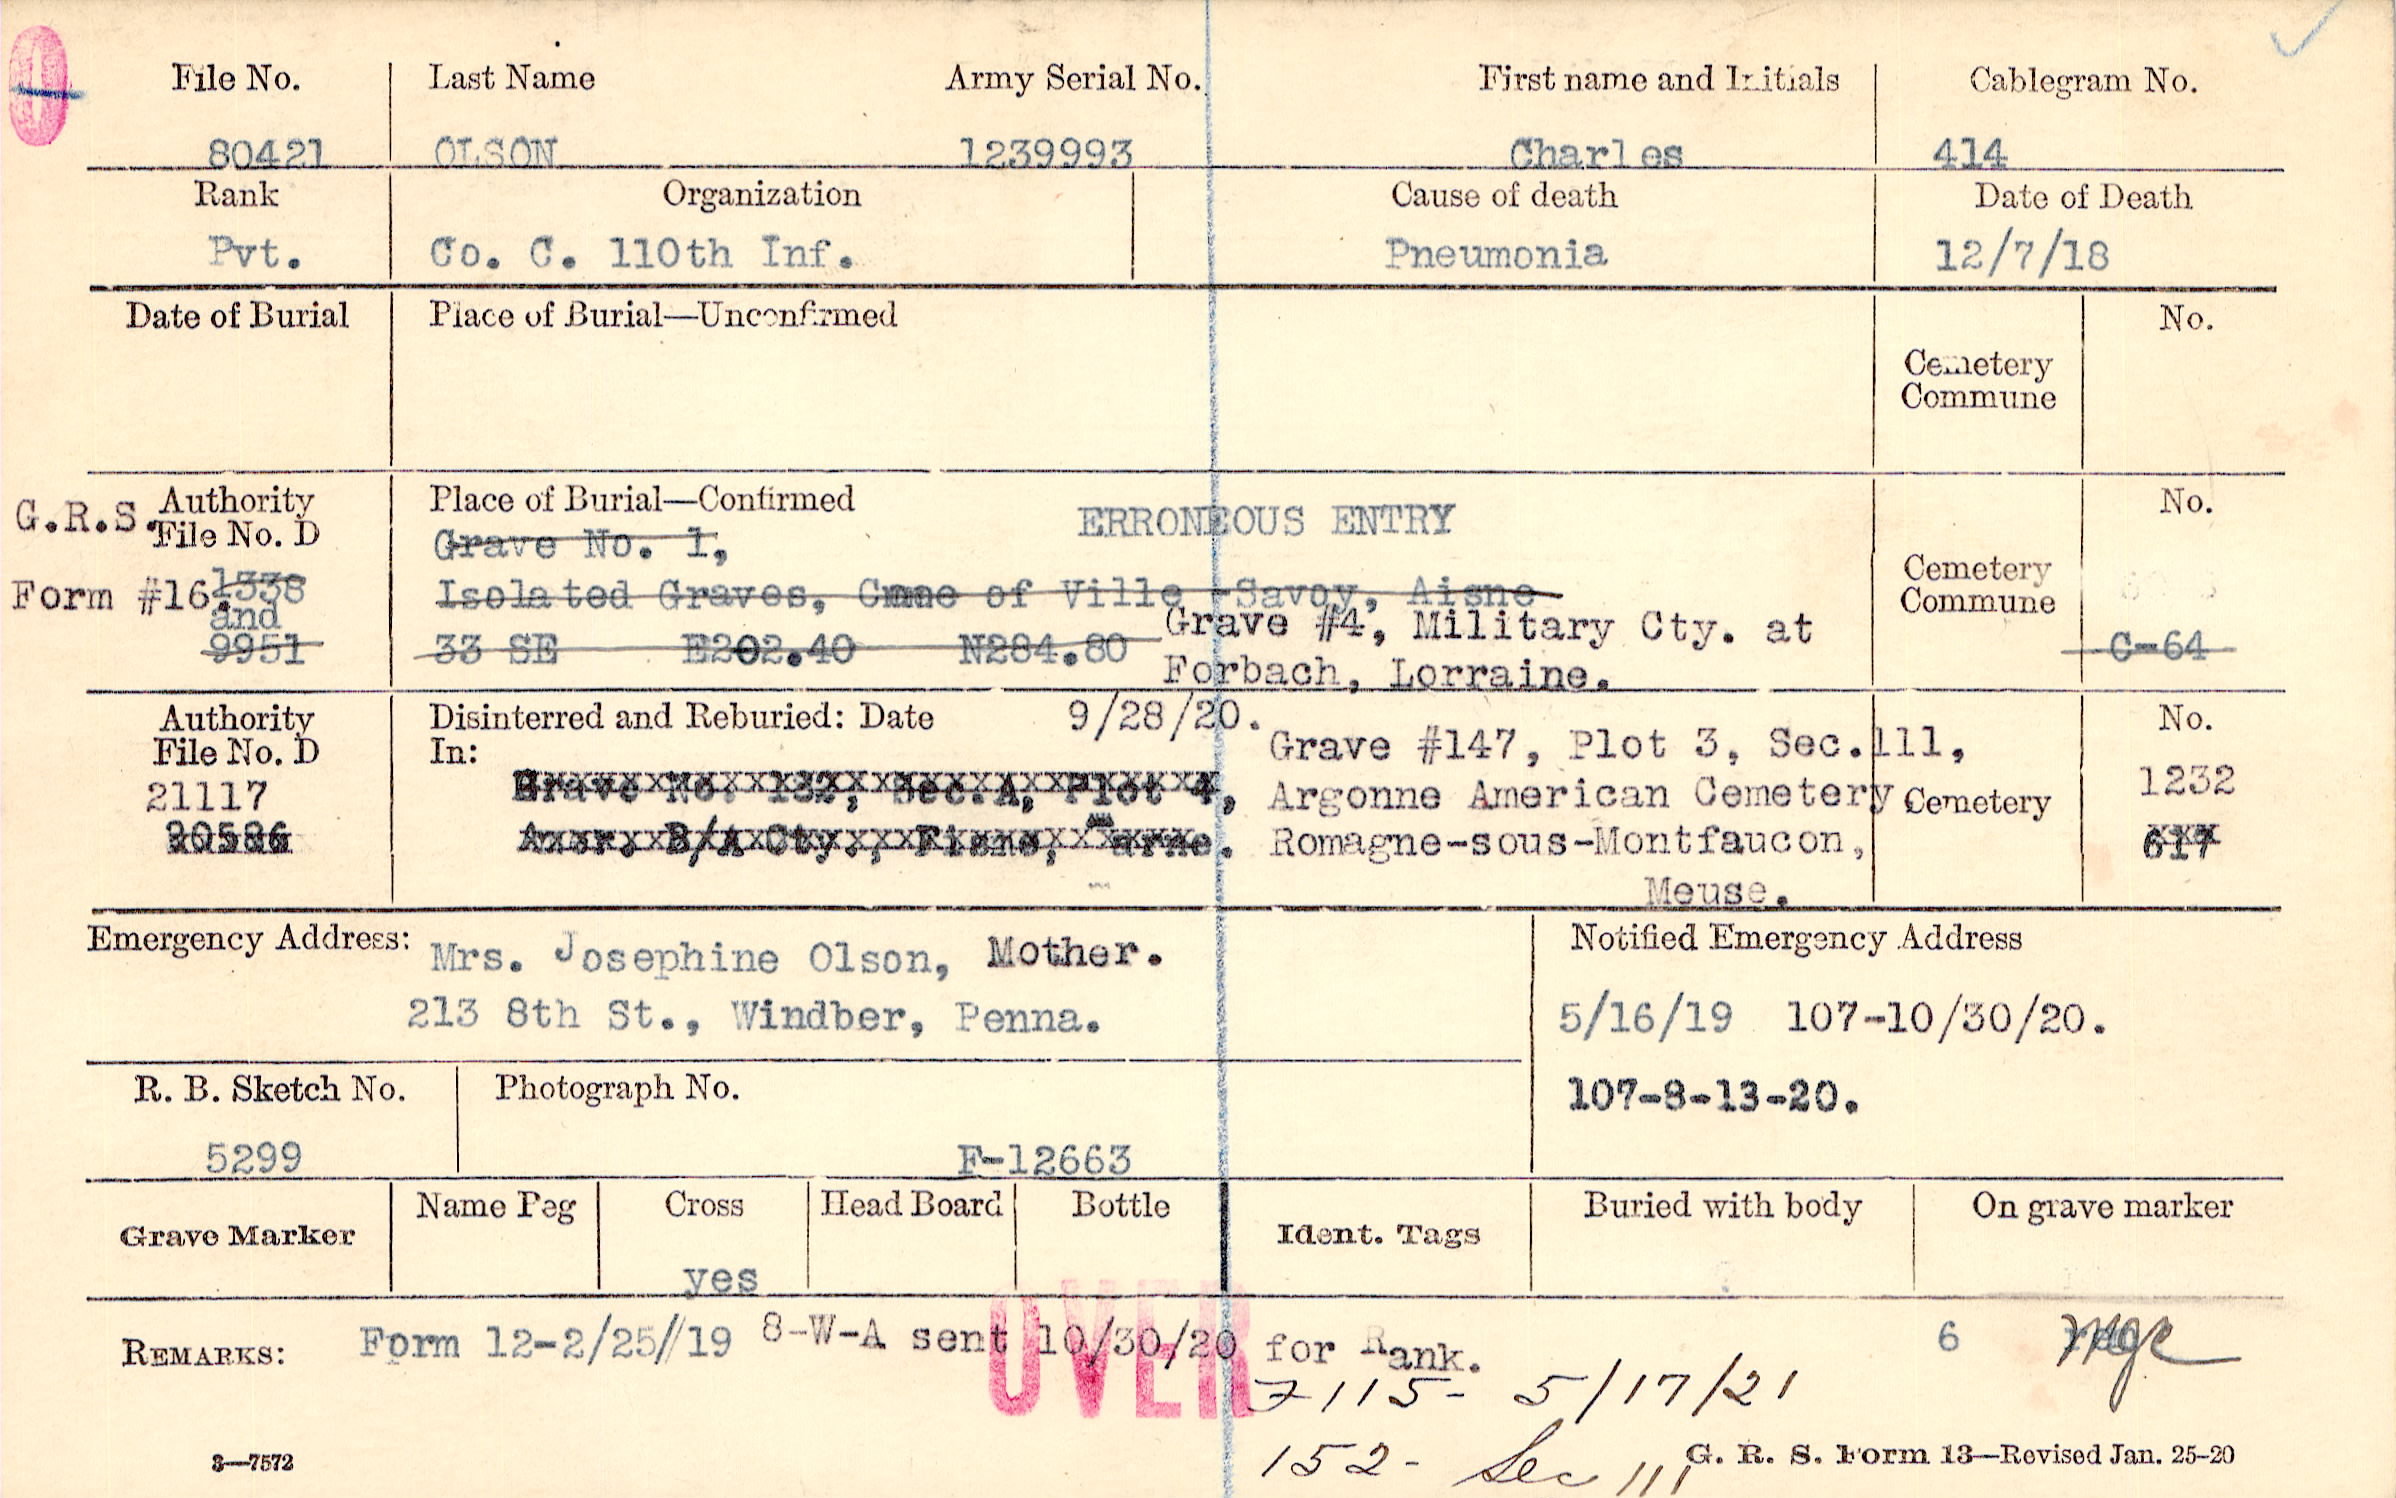 File No. Last Name Army Serial No. First name and Initials Cablegram No.
80421 OLSON 1239993 Charles 414
Rank Organization Cause of death Date of Death
Pvt. Co. C. 110th Inf. Pneumonia 12/7/18
Date of Burial Place of Burial—Unconfirmed No.
Cemetery
Commune
G.R.S. Authority Place of Burial—Confirmed ERRONEOUS ENTRY No.
File No. D Grave No. 1,
Form #16. 1338 Isolated Graves, Cmne of Ville -Savoy, Aisne Cemetery
and Grave #4, Military Cty. at Commune
9951 33 SE E202.40 N284.80 C-64
Forbach, Lorraine.
Authority Disinterred and Reburied: Date 9/28/20. No.
File No. D In: Grave #147, Plot 3, Sec.111,
21117 Grave No. 132, Sec.A, Plot 4, Argonne American Cemetery Cemetery 1232
20586 Amer. B/A Cty., Fisme, Marne. Romagne-sous-Montfaucon, 617
Meuse.
Emergency Address: Mrs. Josephine Olson, Mother. Notified Emergency Address
213 8th St., Windber, Penna. 5/16/19 107-10/30/20.
R. B. Sketch No. Photograph No. 107-8-13-20.
5299 F-12663
Grave Marker Name Peg Cross Head Board Bottle Ident. Tags Buried with body On grave marker
yes
REMARKS: Form 12-2/25//19 8-W-A sent 10/30/20 for Rank. 6
OVER
7115- 5/17/21
152- Sec 111
3—7572 G. R. S. Form 13—Revised Jan. 25-20